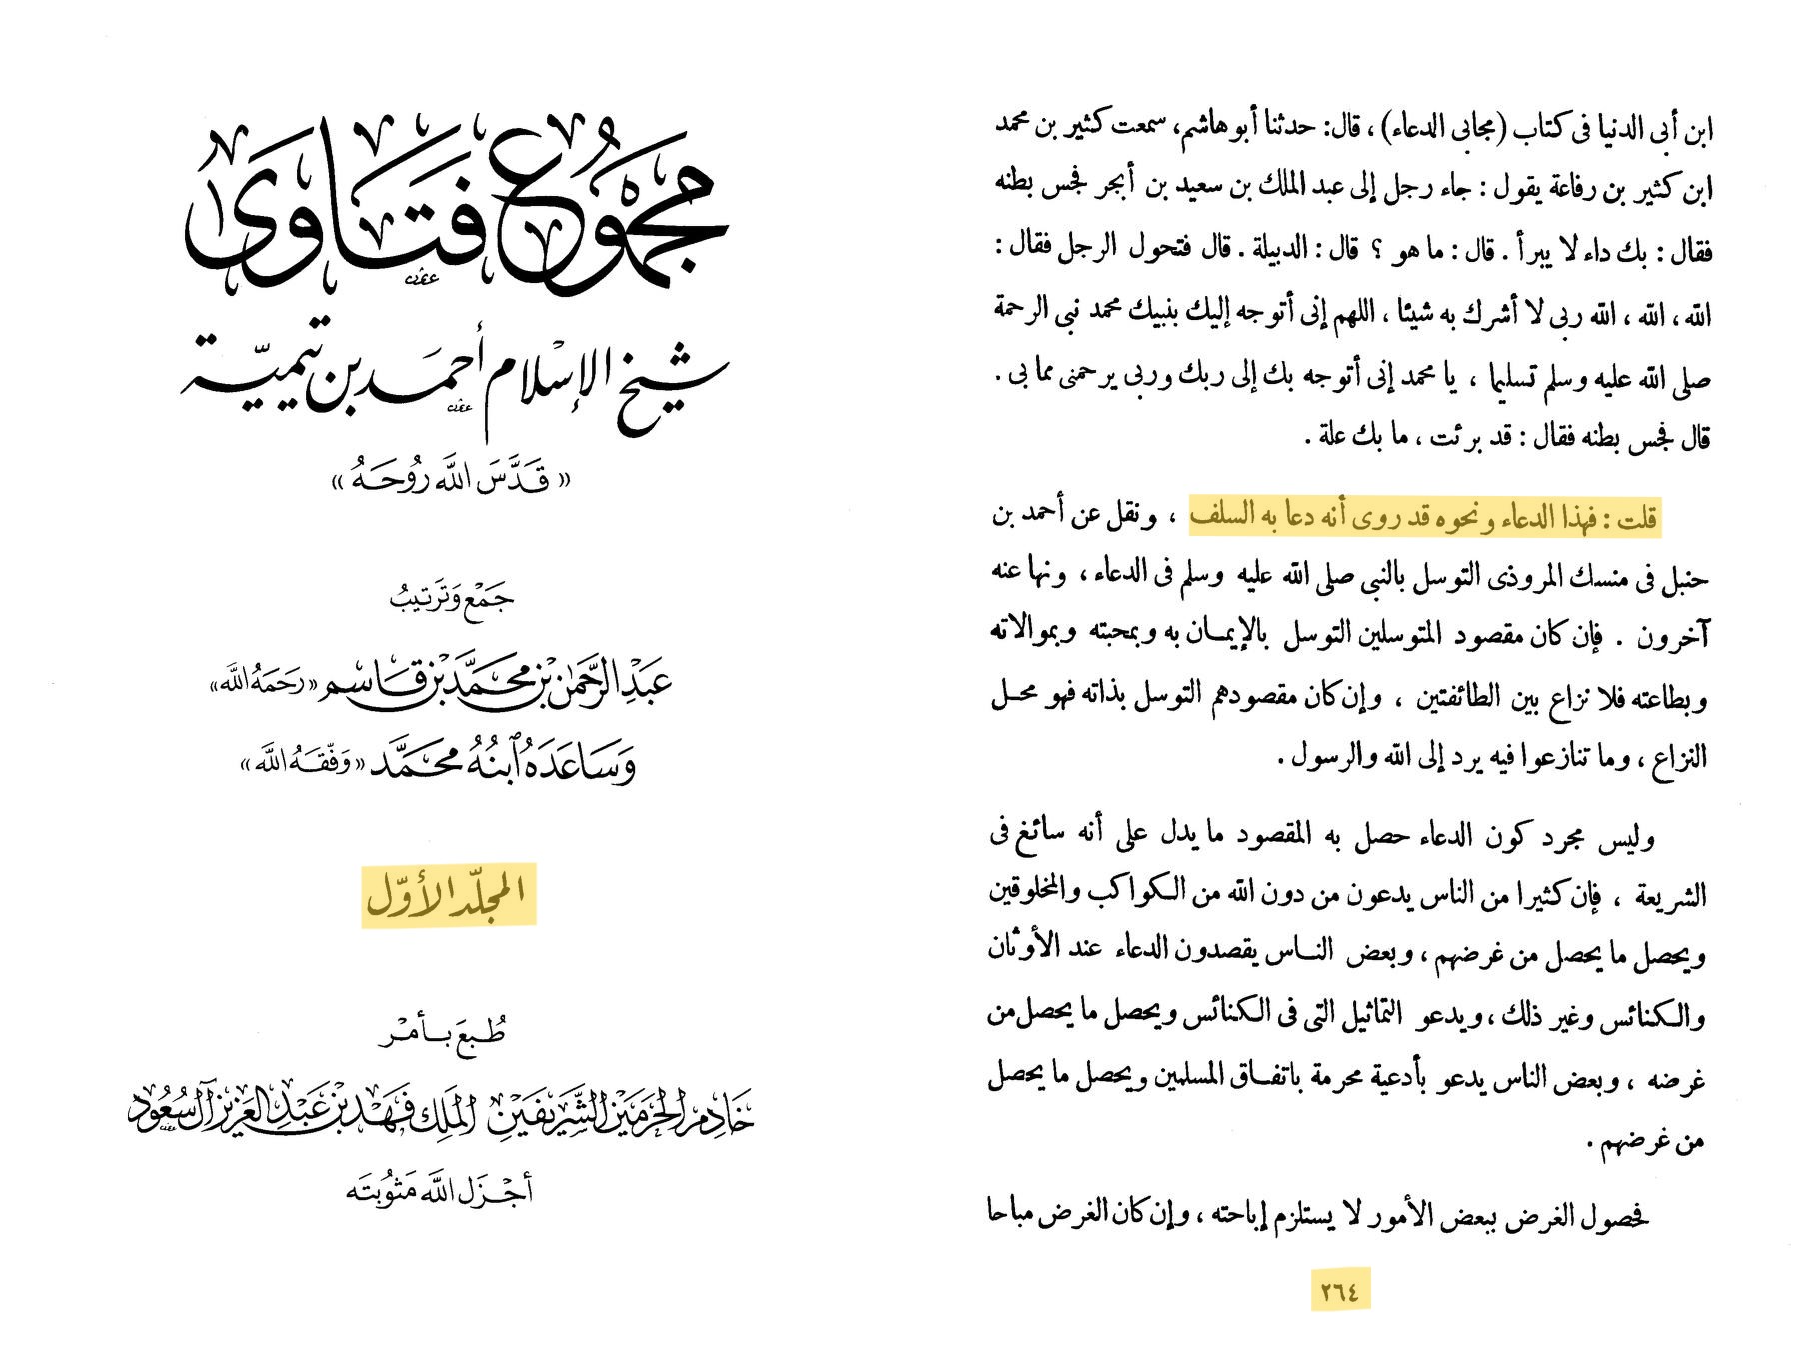 مجموع فتاوى
شيخ الإسلام أحمد بن تيمية
«قدَّسَ الله رُوحَهُ»
جَمْع وَتَرتيبُ
عَبْدِ الرَّحمٰن بْن محَمَّد بْن قَاسم «رَحمَهُ الله»
وَسَاعَدَهُ ٱبنُهُ محَمَّد «وَفّقَهُ الله»
المجلّد الأوّل
طُبعَ بأمْر
خَادِم الحَرمَيْن الشَّرِيفَيْن الملِك فَهْد بْن عَبْد العَزيز آل سُعُود
أجْزَل الله مَثوُبتَه
ابن أبى الدنيا فى كتاب (مجابى الدعاء) ، قال: حدثنا أبو هاشم، سمعت كثير بن محمد
ابن كثير بن رفاعة يقول : جاء رجل إلى عبد الملك بن سعيد بن أبجر فجس بطنه
فقال : بك داء لا يبرأ . قال : ما هو ؟ قال : الدبيلة . قال فتحول الرجل فقال :
الله ، الله ، الله ربى لا أشرك به شيئا ، اللهم إنى أتوجه إليك بنبيك محمد نبى الرحمة
صلى الله عليه وسلم تسليما ، يا محمد إنى أتوجه بك إلى ربك وربى يرحمنى مما بى .
قال فجس بطنه فقال : قد برئت ، ما بك علة .
قلت : فهذا الدعاء ونحوه قد روى أنه دعا به السلف ، ونقل عن أحمد بن
حنبل فى منسك المروذى التوسل بالنبى صلى الله عليه وسلم فى الدعاء ، ونها عنه
آخرون . فإن كان مقصود المتوسلين التوسل بالإيمان به وبمحبته وبموالاته
وبطاعته فلا نزاع بين الطائفتين ، وإن كان مقصودهم التوسل بذاته فهو محل
النزاع ، وما تنازعوا فيه يرد إلى الله والرسول .
وليس مجرد كون الدعاء حصل به المقصود ما يدل على أنه سائغ فى
الشريعة ، فإن كثيرا من الناس يدعون من دون الله من الكواكب والمخلوقين
ويحصل ما يحصل من غرضهم ، وبعض الناس يقصدون الدعاء عند الأوثان
والكنائس وغير ذلك ، ويدعو التماثيل التى فى الكنائس ويحصل ما يحصل من
غرضه ، وبعض الناس يدعو بأدعية محرمة باتفاق المسلمين ويحصل ما يحصل
من غرضهم .
فحصول الغرض ببعض الأمور لا يستلزم إباحته ، وإن كان الغرض مباحا
٢٦٤